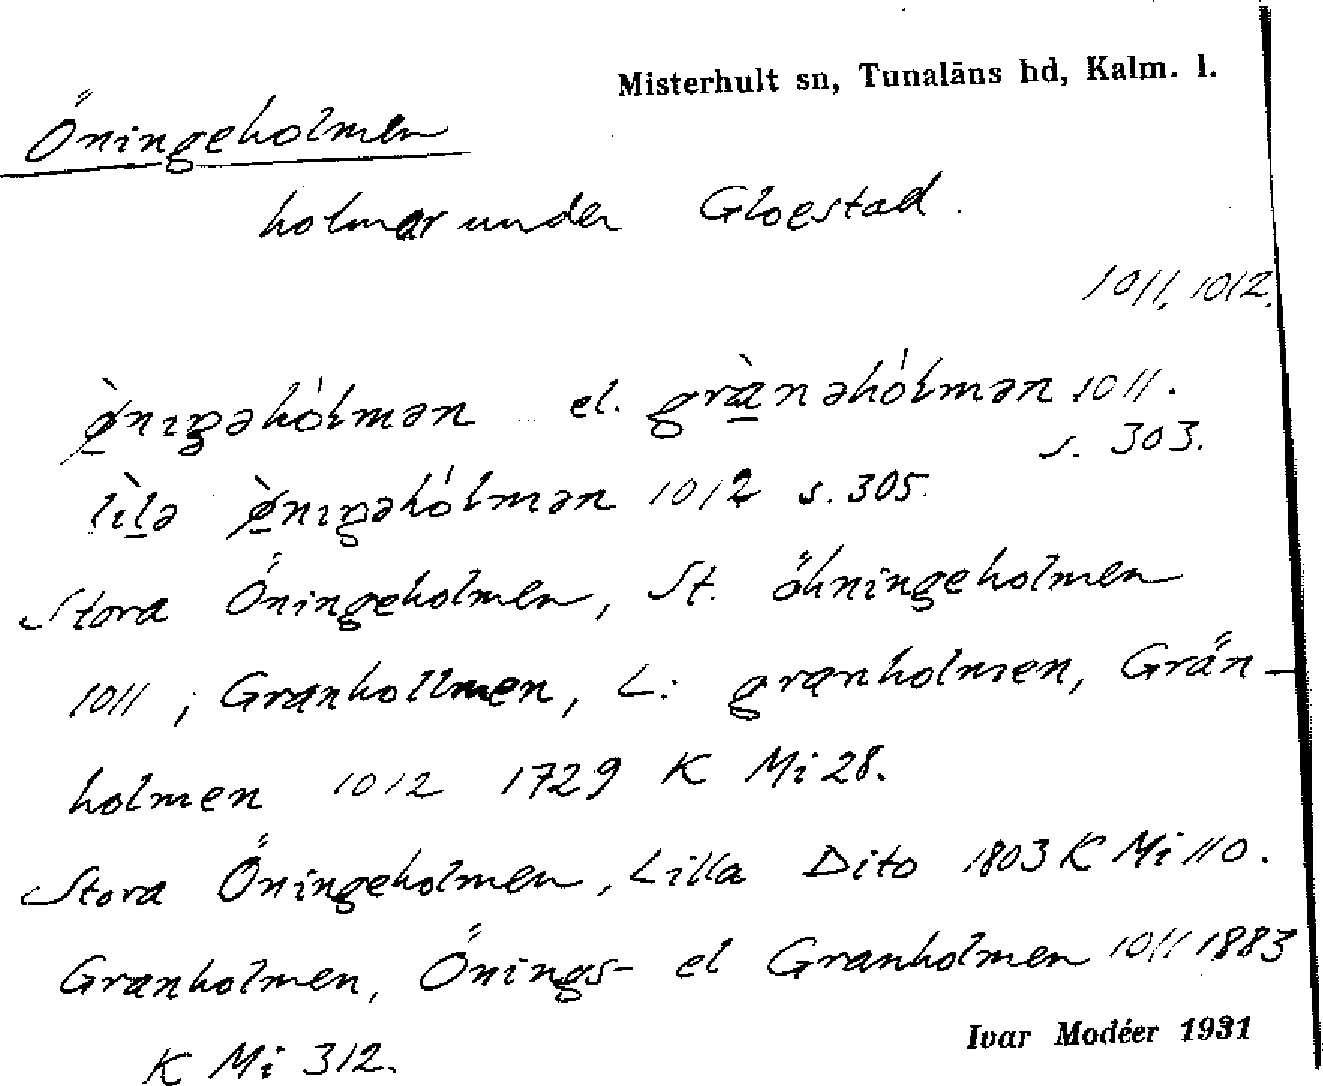 Misterhult sn, Tunaläns hd, Kalm. l.
Öningeholmen
holmar under Gloestad.
1011, 1012.
ø̀nıŋəhól̵mən el. grànəhól̵mən 1011.
s. 303.
lìlə ø̀nıŋəhól̵mən 1012 s. 305.
Stora Öningeholmen, St. öhningeholmen
1011; Granhollmen, L: granholmen, Grän-
holmen 1012 1729 K Mi 28.
Stora Öningeholmen, Lilla Dito 1803 K Mi 110.
Granholmen, Önings- el Granholmen 1011 1883
K Mi 312.
Ivar Modéer 1931